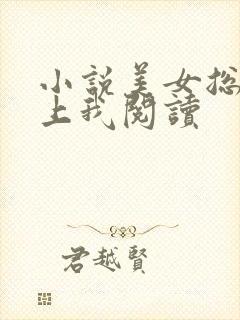 小說美女総
上我閱讀
君越賢